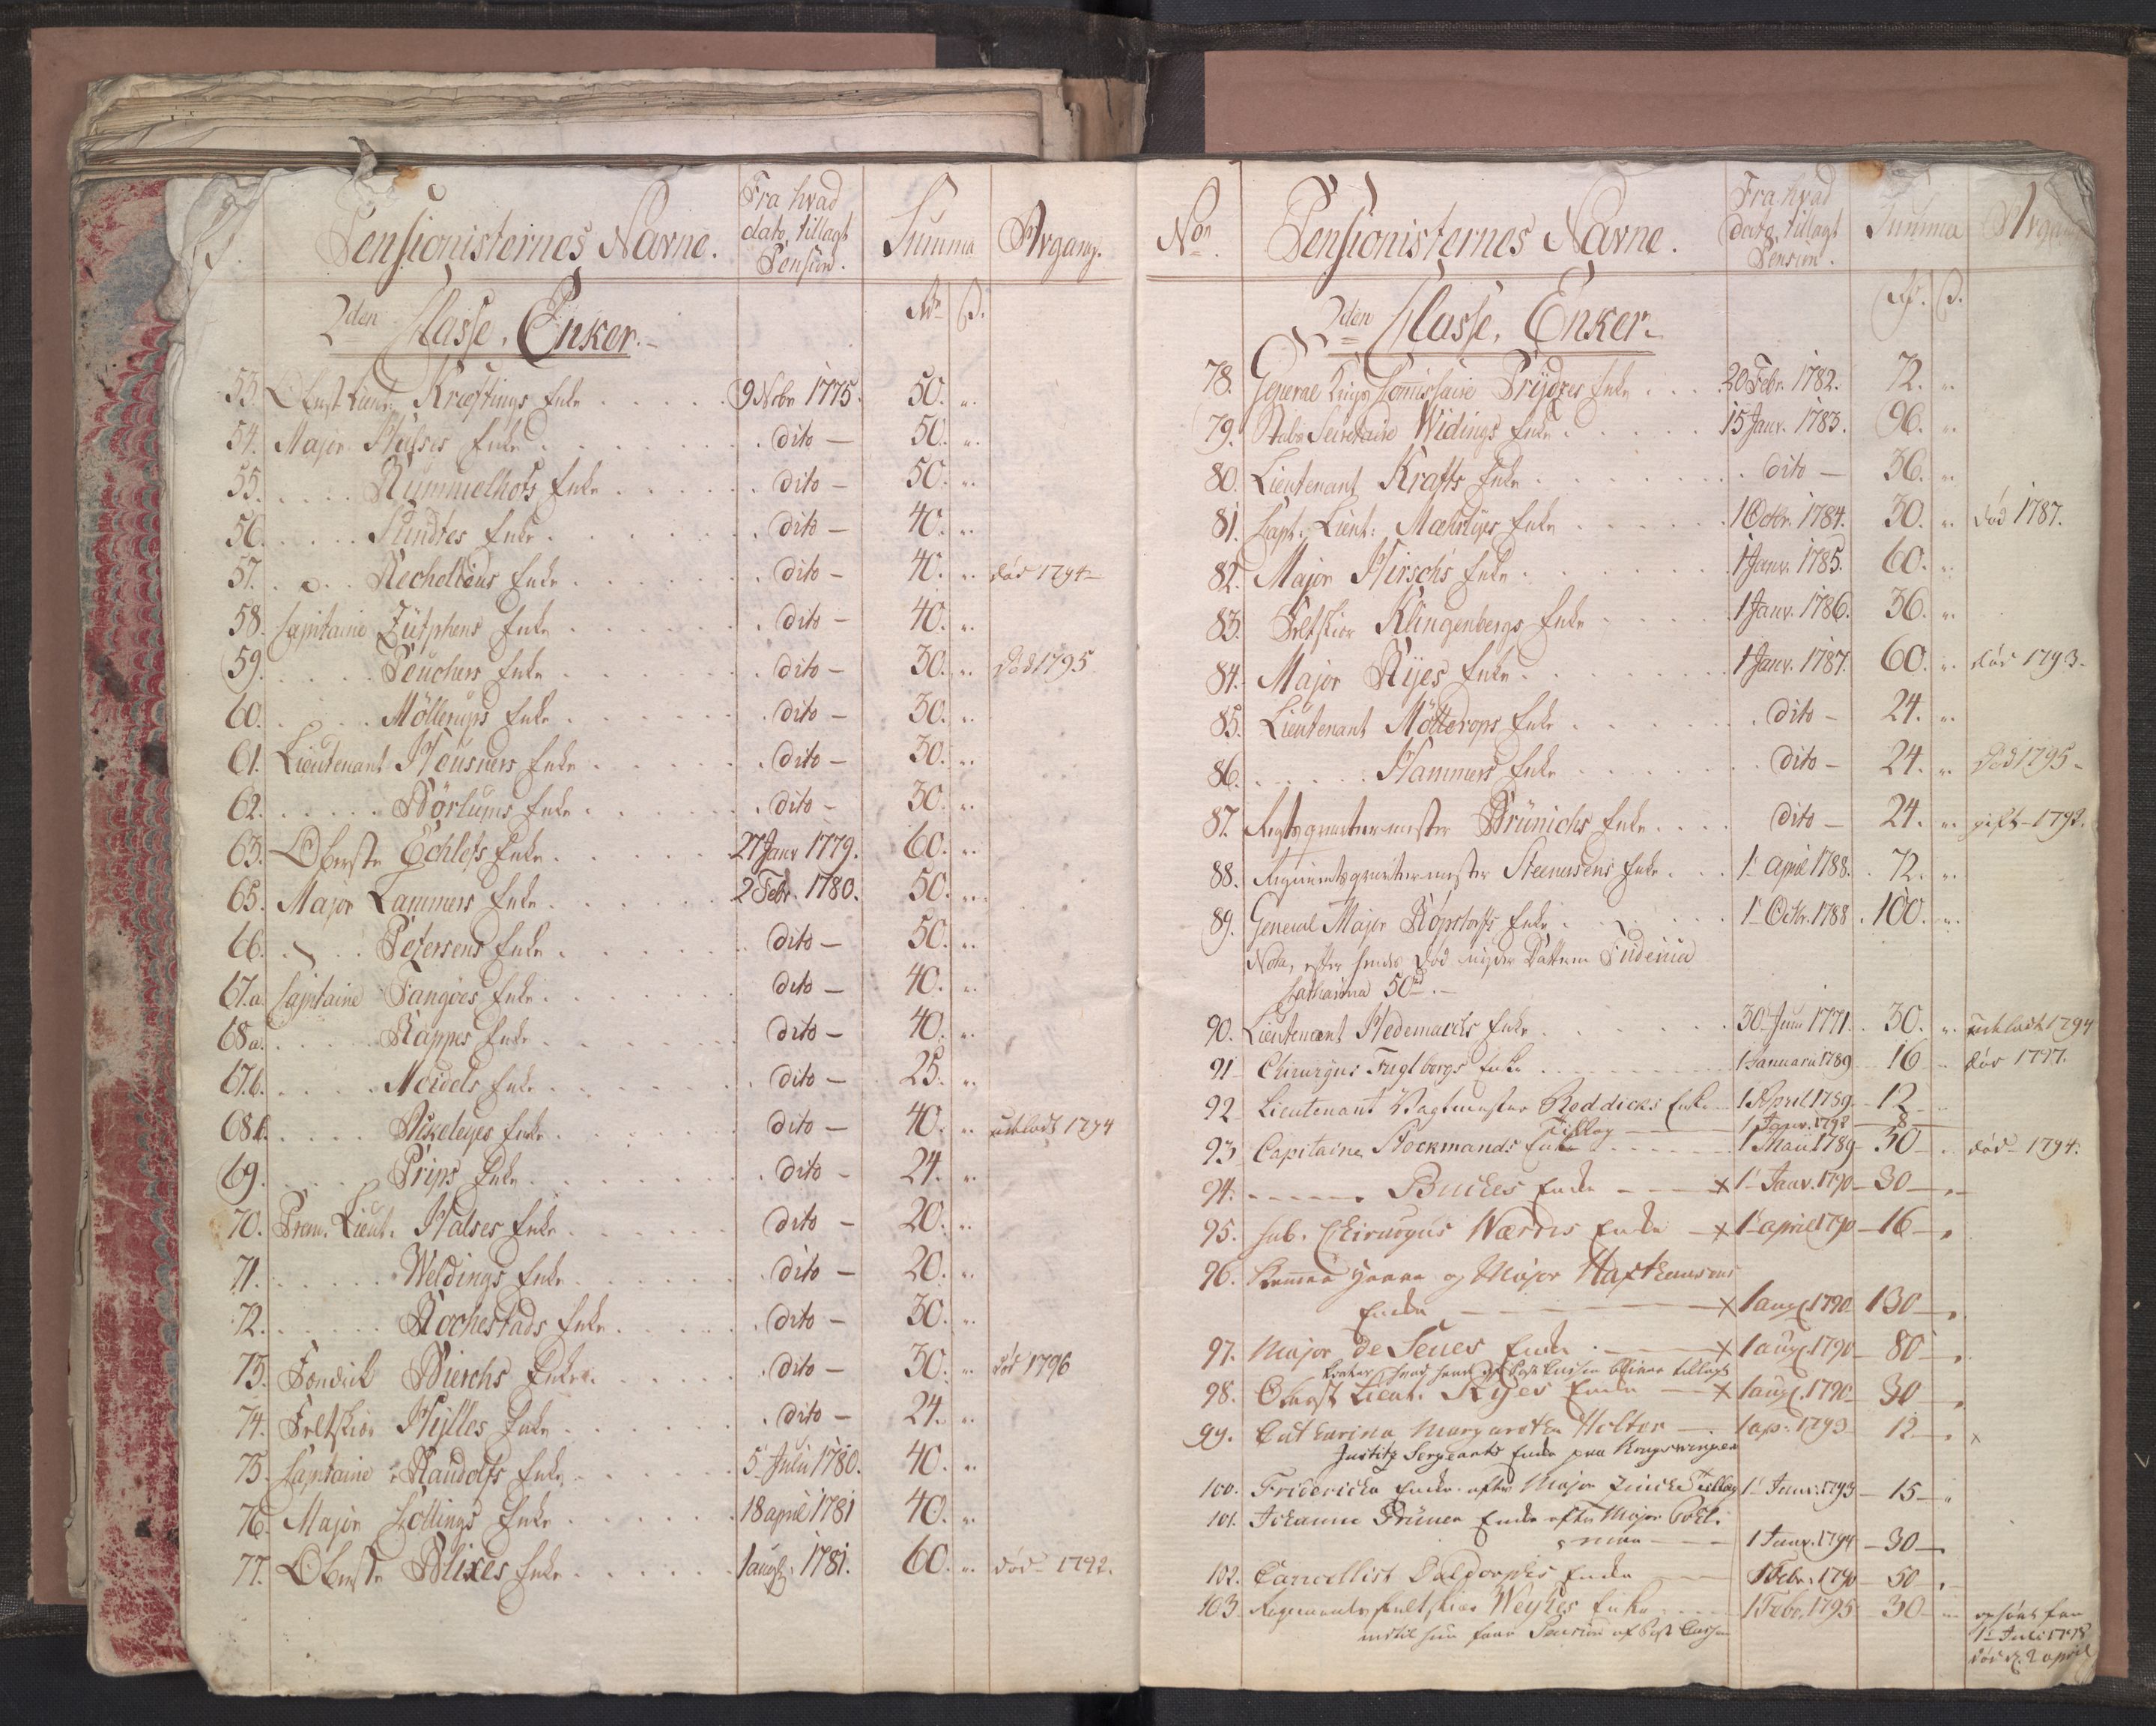 Pensionisternes Navne. Fra hvad dato, tillagt Pension. Summa Afgang.
2den Classe, Enker.
Rdr ß.
53. Oberst Lieut: Krøftings Enke 9 Nobr 1775. 50. "
54. Major Hülses Enke dito 50. "
55. Rummelhofs Enke dito 50. "
56. Enke dito 40. "
57. Enke dito 40. " død 1794
58. Capitaine Zütphens Enke dito 40. "
59. Teuchers Enke dito 30. " Død 1795
60. Möllerups Enke dito 30. "
61. Lieutenant Heusners Enke dito 30. "
62. Börlums Enke dito 30. "
63. Oberste Echlefs Enke 27 Janv 1779. 60. "
65. Major Lammers Enke 2 Febr. 1780. 50. "
66. Petersens Enke dito 50. "
67.a. Capitaine Fangöes Enke dito 40. "
68a. Rappes Enke dito 40. "
67.b. Meidels Enke dito 25. "
68b. Enke dito 40. " udeladt 1794
69. Prips Enke dito 24. "
70. Prem. Lieut. Halses Enke dito 20. "
71. Weldings Enke dito 20. "
72. Rochestads Enke dito 30. "
73. Fændrik Bierchs Enke dito 30. " død 1796
74. Feltskior Hylles Enke dito 24. "
75. Capitaine Raudolfs Enke 5 Julii 1780. 40. "
76. Major Collings Enke 18 april 1781 40. "
77. Oberste Blixes Enke 1 aug. 1781. 60. " død 1792.
Non Pensionisternes Navne. Fra hvad dato, tillagt Pension. Summa Afgang
2den Classe, Enker
Rd. ß.
78. General Krigs Comissaire Prydzes Enke 20 Febr. 1782. 72. "
79. Stabs Secretaire Widings Enke 15 Janv. 1783. 96. "
80. Lieutenant Krafts Enke dito 36. "
81. Capt: Lieut: Enke 1 Octbr. 1784. 30. " død 1787.
82. Major Hirschs Enke 1 Janv. 1785. 60. "
83. Feltskior Klingenbergs Enke 1 Janv. 1786. 36. "
84. Major Ryes Enke 1 Janv. 1787. 60. " død 1793.
85. Lieutenant Möllerops Enke dito 24. "
86. Hammers Enke dito 24. " Død 1795
87. Regtsqvarteermester Brünichs Enke dito 24. " gift 1792.
88. Regimentsqvarteermester Steenersens Enke 1 April 1788. 72. "
89. General Major Röpstorffs Enke 1 Octbr. 1788. 100. "
Nota, efter hendes Død nyder Datteren
Catharina 50 rd.
90. Lieutenant Hedemarcks Enke 30 Juni 1771. 30. " udeladt 1794
91 Chirurgus Fuglbergs Enke 1 Januarii 1789 16 død 1797.
92 Lieutenant Vagtmester Reddicks Enke 1 April 1789 12
Tillæg 1 Janv. 1792 8
93 Capitaine Stockmands Enke 1 Maii 1789 30 død 1794.
94. Buckes Enke x 1 Janv. 1790 30
95. Sub. Chirurgus Værns Enke x 1 april 1790 16
96. Kammer Junker og Major Haxthausens
Enke x 1 aug. 1790 130
97. Major de Seues Enke x 1 aug. 1790 80
98. Oberst Lieut. Ryes Enke x 1 aug. 1790 30
99. Catharina Margaretha Holter 1 apr. 1793 12 x
Justits Sergeants Enke paa Kongsvinger
100. Fridericka Enke efter Major Tillæg 1 Janv. 1793 15
101. Johanne Brüner Enke efter Major
1 Janv. 1794 30
102. Cancellist Daldorphs Enke 1 Febr. 1790 50
103 Regiments feltskier Weyhes Enke 1 Febr. 1795 30
indtil hun faar Pension af Post Cassen
1 Juli
død d. 2 april